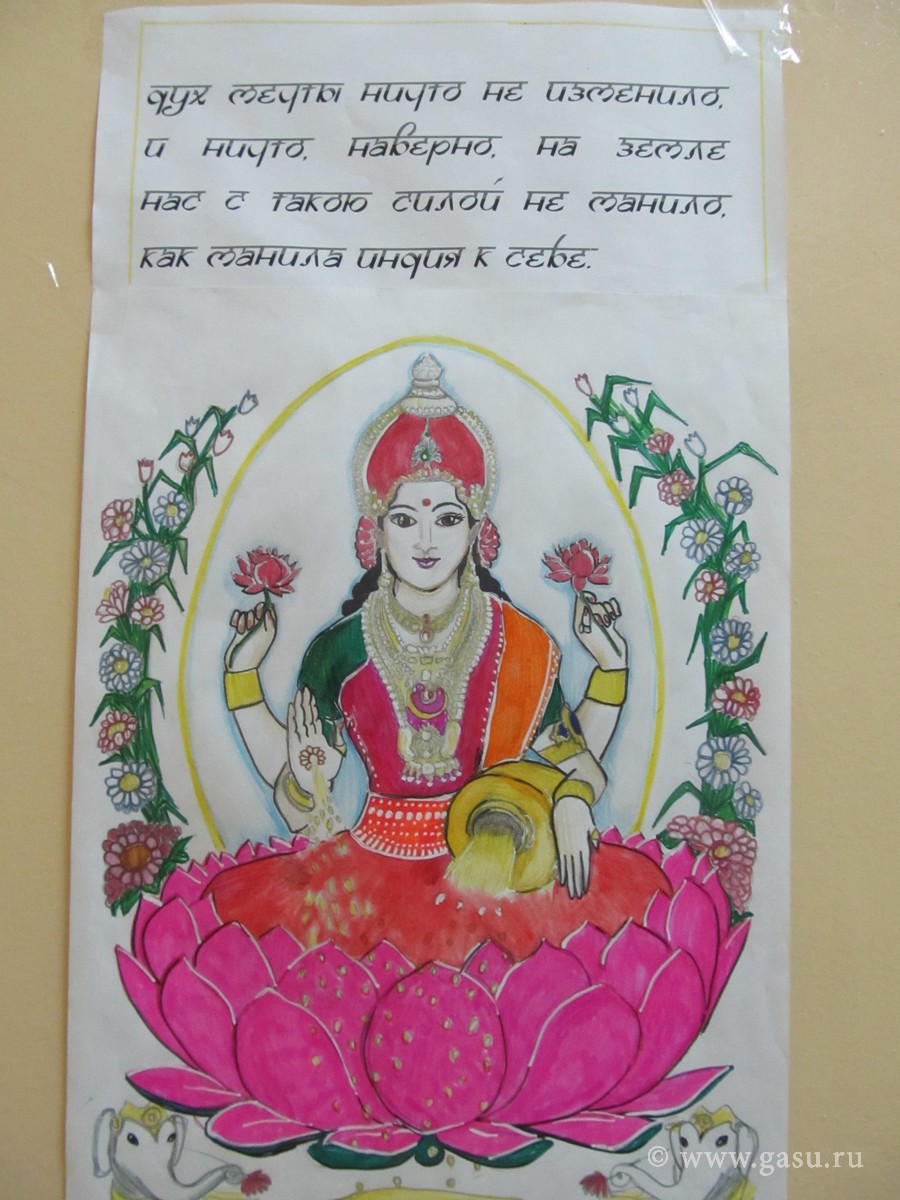 дух мечты ничто не изменило,
и ничто, наверно, на земле
нас с такою силой не манило,
как манила индия к себе.
© www.gasu.ru